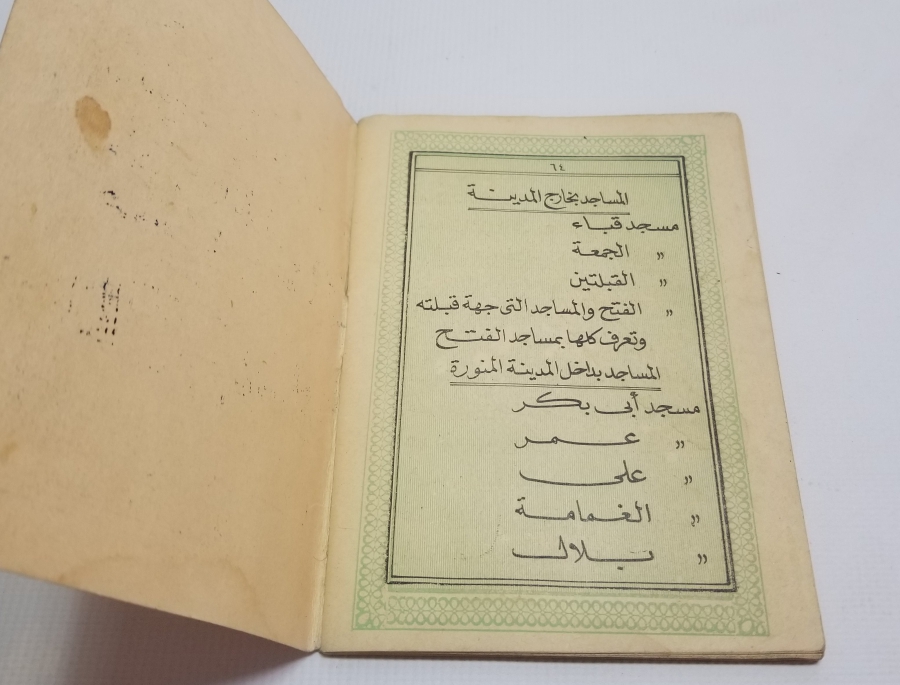 ٦٤
المساجد بخارج المدينة
مسجد قباء
" الجمعة
" القبلتين
" الفتح والمساجد التى جهة قبلته
وتعرف كلها بمساجد الفتح
المساجد بداخل المدينة المنورة
مسجد أبى بكر
" عمر
" على
" الغمامة
" بلال